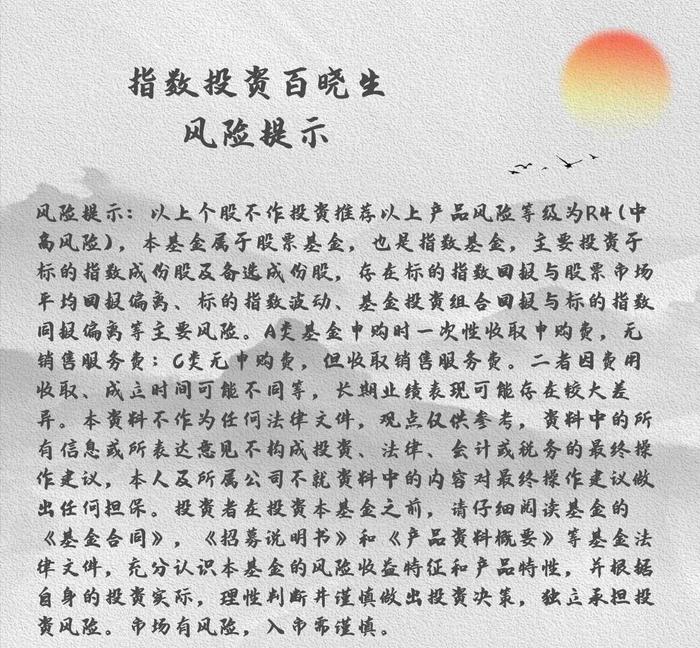 指数投资百晓生
风险提示
风险提示：以上个股不作投资推荐以上产品风险等级为R4(中
高风险)，本基金属于股票基金，也是指数基金，主要投资于
标的指数成份股及备选成份股，存在标的指数回报与股票市场
平均回报偏离、标的指数波动、基金投资组合回报与标的指数
回报偏离等主要风险。A类基金申购时一次性收取申购费，无
销售服务费；C类无申购费，但收取销售服务费。二者因费用
收取、成立时间可能不同等，长期业绩表现可能存在较大差
异。本资料不作为任何法律文件，观点仅供参考，资料中的所
有信息或所表达意见不构成投资、法律、会计或税务的最终操
作建议，本人及所属公司不就资料中的内容对最终操作建议做
出任何担保。投资者在投资本基金之前，请仔细阅读基金的
《基金合同》，《招募说明书》和《产品资料概要》等基金法
律文件，充分认识本基金的风险收益特征和产品特性，并根据
自身的投资实际，理性判断并谨慎做出投资决策，独立承担投
资风险。市场有风险，入市需谨慎。